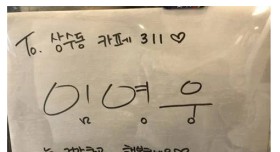 To. 상수동 카페 311 ♡
임영웅